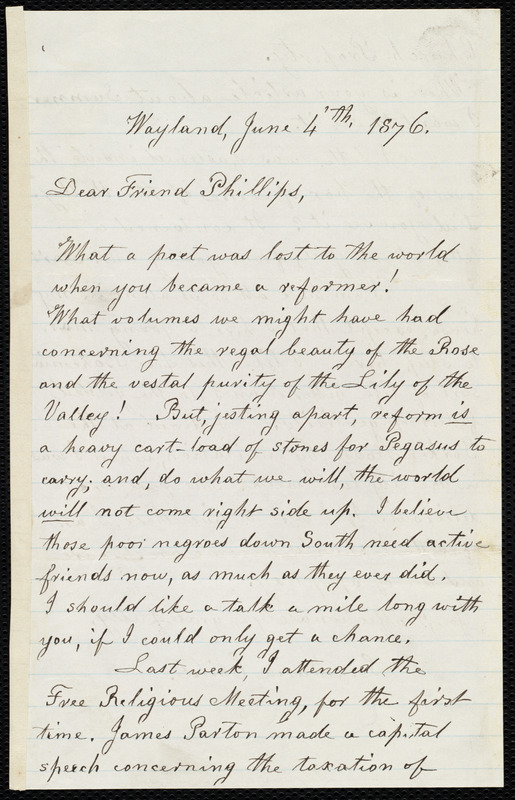 Wayland, June 4'th, 1876.
Dear Friend Phillips,
What a poet was lost to the world
when you became a reformer!
What volumes we might have had
concerning the regal beauty of the Rose
and the vestal purity of the Lily of the
Valley! But, jesting apart, reform is
a heavy cart-load of stones for Pegasus to
carry; and, do what we will, the world
will not come right side up. I believe
those poor negroes down South need active
friends now, as much as they ever did.
I should like a talk a mile long with
you, if I could only get a chance.
Last week, I attended the
Free Religious Meeting, for the first
time. James Parton made a capital
speech concerning the taxation of